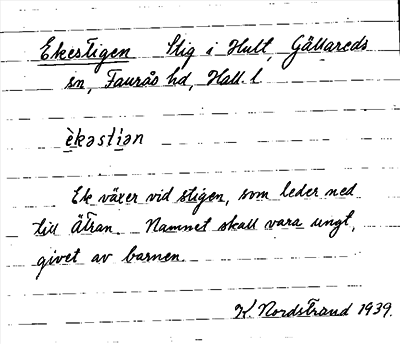 Ekestigen Stig i Hult, Gällareds
sn, Faurås hd, Hall. l
èkəsti̯ən
Ek växer vid stigen, som leder ned
till Ätran. Namnet skall vara ungt,
givet av barnen.
K. Nordstrand 1939.